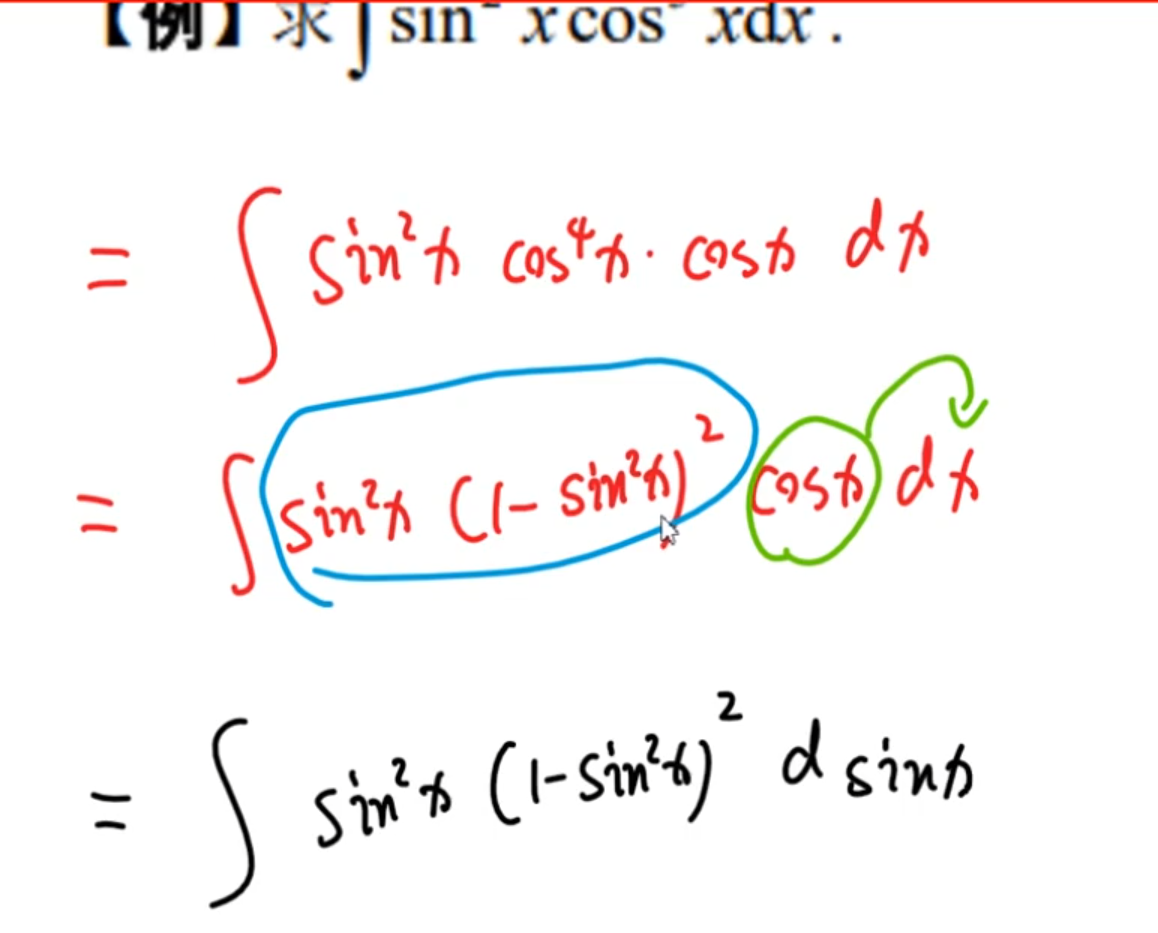 【例】求∫sin² x cos⁵ xdx .
= ∫ sin²x cos⁴x · cosx dx
= ∫ sin²x (1- sin²x)² cosx dx
= ∫ sin²x (1-sin²x)² d sinx